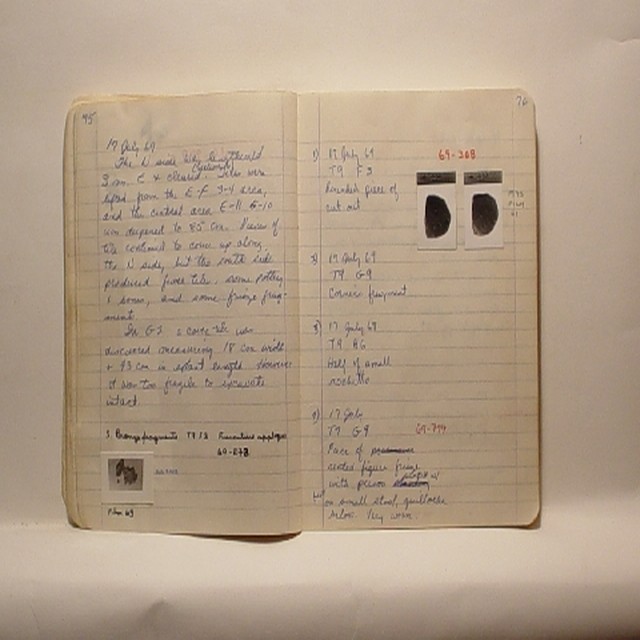 75
17 July 69
The N side was lengthened
3 m. E & cleared. Tiles were
from the E-F 3-4 area,
and the central area E-11 G-10
was deepened to 85 cm. Pieces of
tile continued to come up along
the N side, but the south side
produced fewer tile, some pottery
& bones, and some frieze frag-
ment.
In G3 a cover tile was
discovered measuring 18 cm wide
+ 43 cm in extant length however
it was too fragile to excavate
intact.
3 Bronze fragments T9 Furniture applique
69-
Film 69
76
1) 17 July 69
T9 F3
Rounded piece of
cut out
69-368
2) 17 July 69
T9 G9
Corner fragment
3) 17 July 69
T9 H6
Half of small
rocchetto
4) 17 July
T9 G9
69-799
Piece of
seated figure frieze
with person
on small stool, guilloche
below. Very worn.